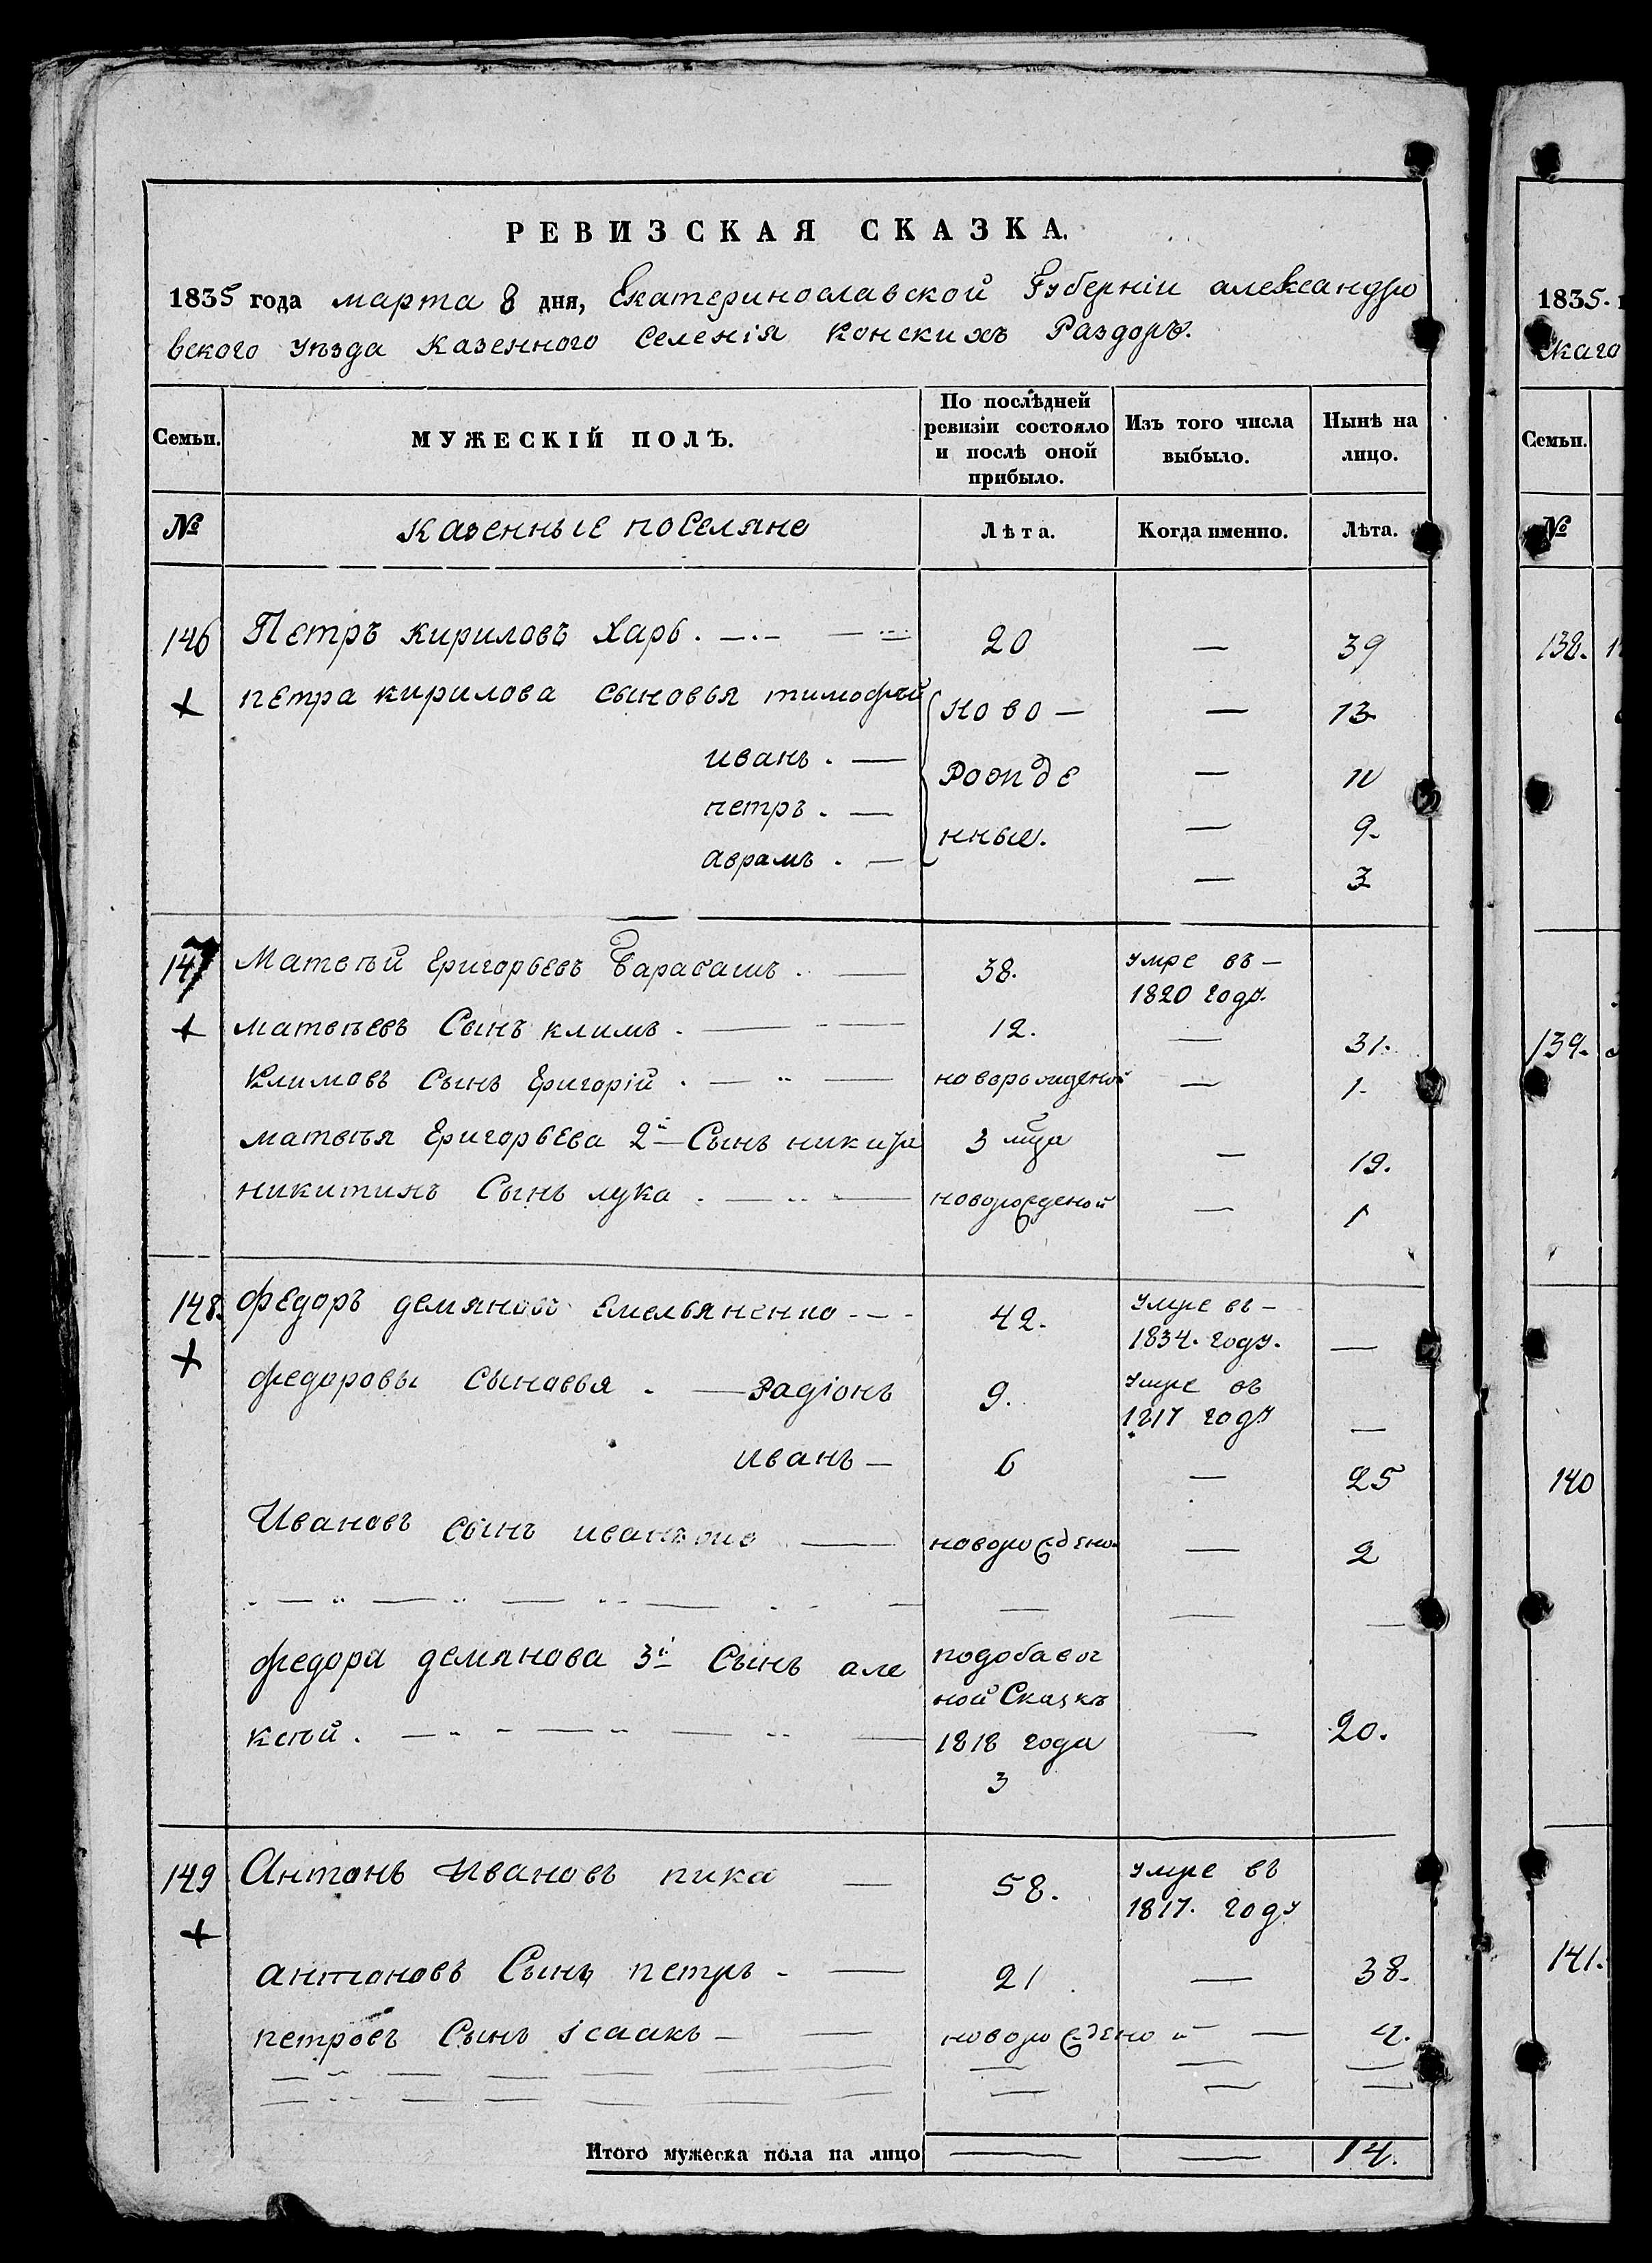 РЕВИЗСКАЯ СКАЗКА.
1835 года марта 8 дня, Екатеринославской Губерніи александро
вского уѣзда казенного Селенія Конскихъ Раздоръ.
Семьи. МУЖЕСКІЙ ПОЛЪ. По послѣдней ревизіи состояло и послѣ оной прибыло. Изъ того числа выбыло. Нынѣ на лицо.
№ казенные поселяне Лѣта. Когда именно. Лѣта.
146 Петръ кириловъ Харь. — 20 — 39
петра кирилова сыновья тимофей ново — — 13
иванъ. — рожде — 10
петръ. — нные. — 9.
аврамъ. — — 3
147 Матвѣй Григорьевъ Барабашъ. — 38. умре въ —
1820 году.
матвѣевъ Сынъ климъ. — 12. — 31.
Климовъ Сынъ Григорій. — новорожденой — 1.
матвѣя Григорьева 2й Сынъ никита 3 мца — 19.
никитинъ Сынъ лука. — новорожденой — 1
148. федоръ демяновъ Емельяненко - - - 42. умре въ —
1834. году. —
федоровы сыновья. — Радіонъ 9. умре въ
1817 году —
иванъ — 6 — 25
Ивановъ сынъ — новорождено — 2
федора демянова 3й Сынъ але подобавоч
ной Сказкѣ
ксѣй. — 1818 года — 20.
3
149 Антонъ Ивановъ пика — 58. умре въ
1817. году
антоновъ Сынъ петръ - — 21 — 38.
петровъ Сынъ ісаакъ — новорожденой — 4.
Итого мужеска пола на лицо — — 14.
1835.
скаго
Семьи.
№
138.
139.
140
141.